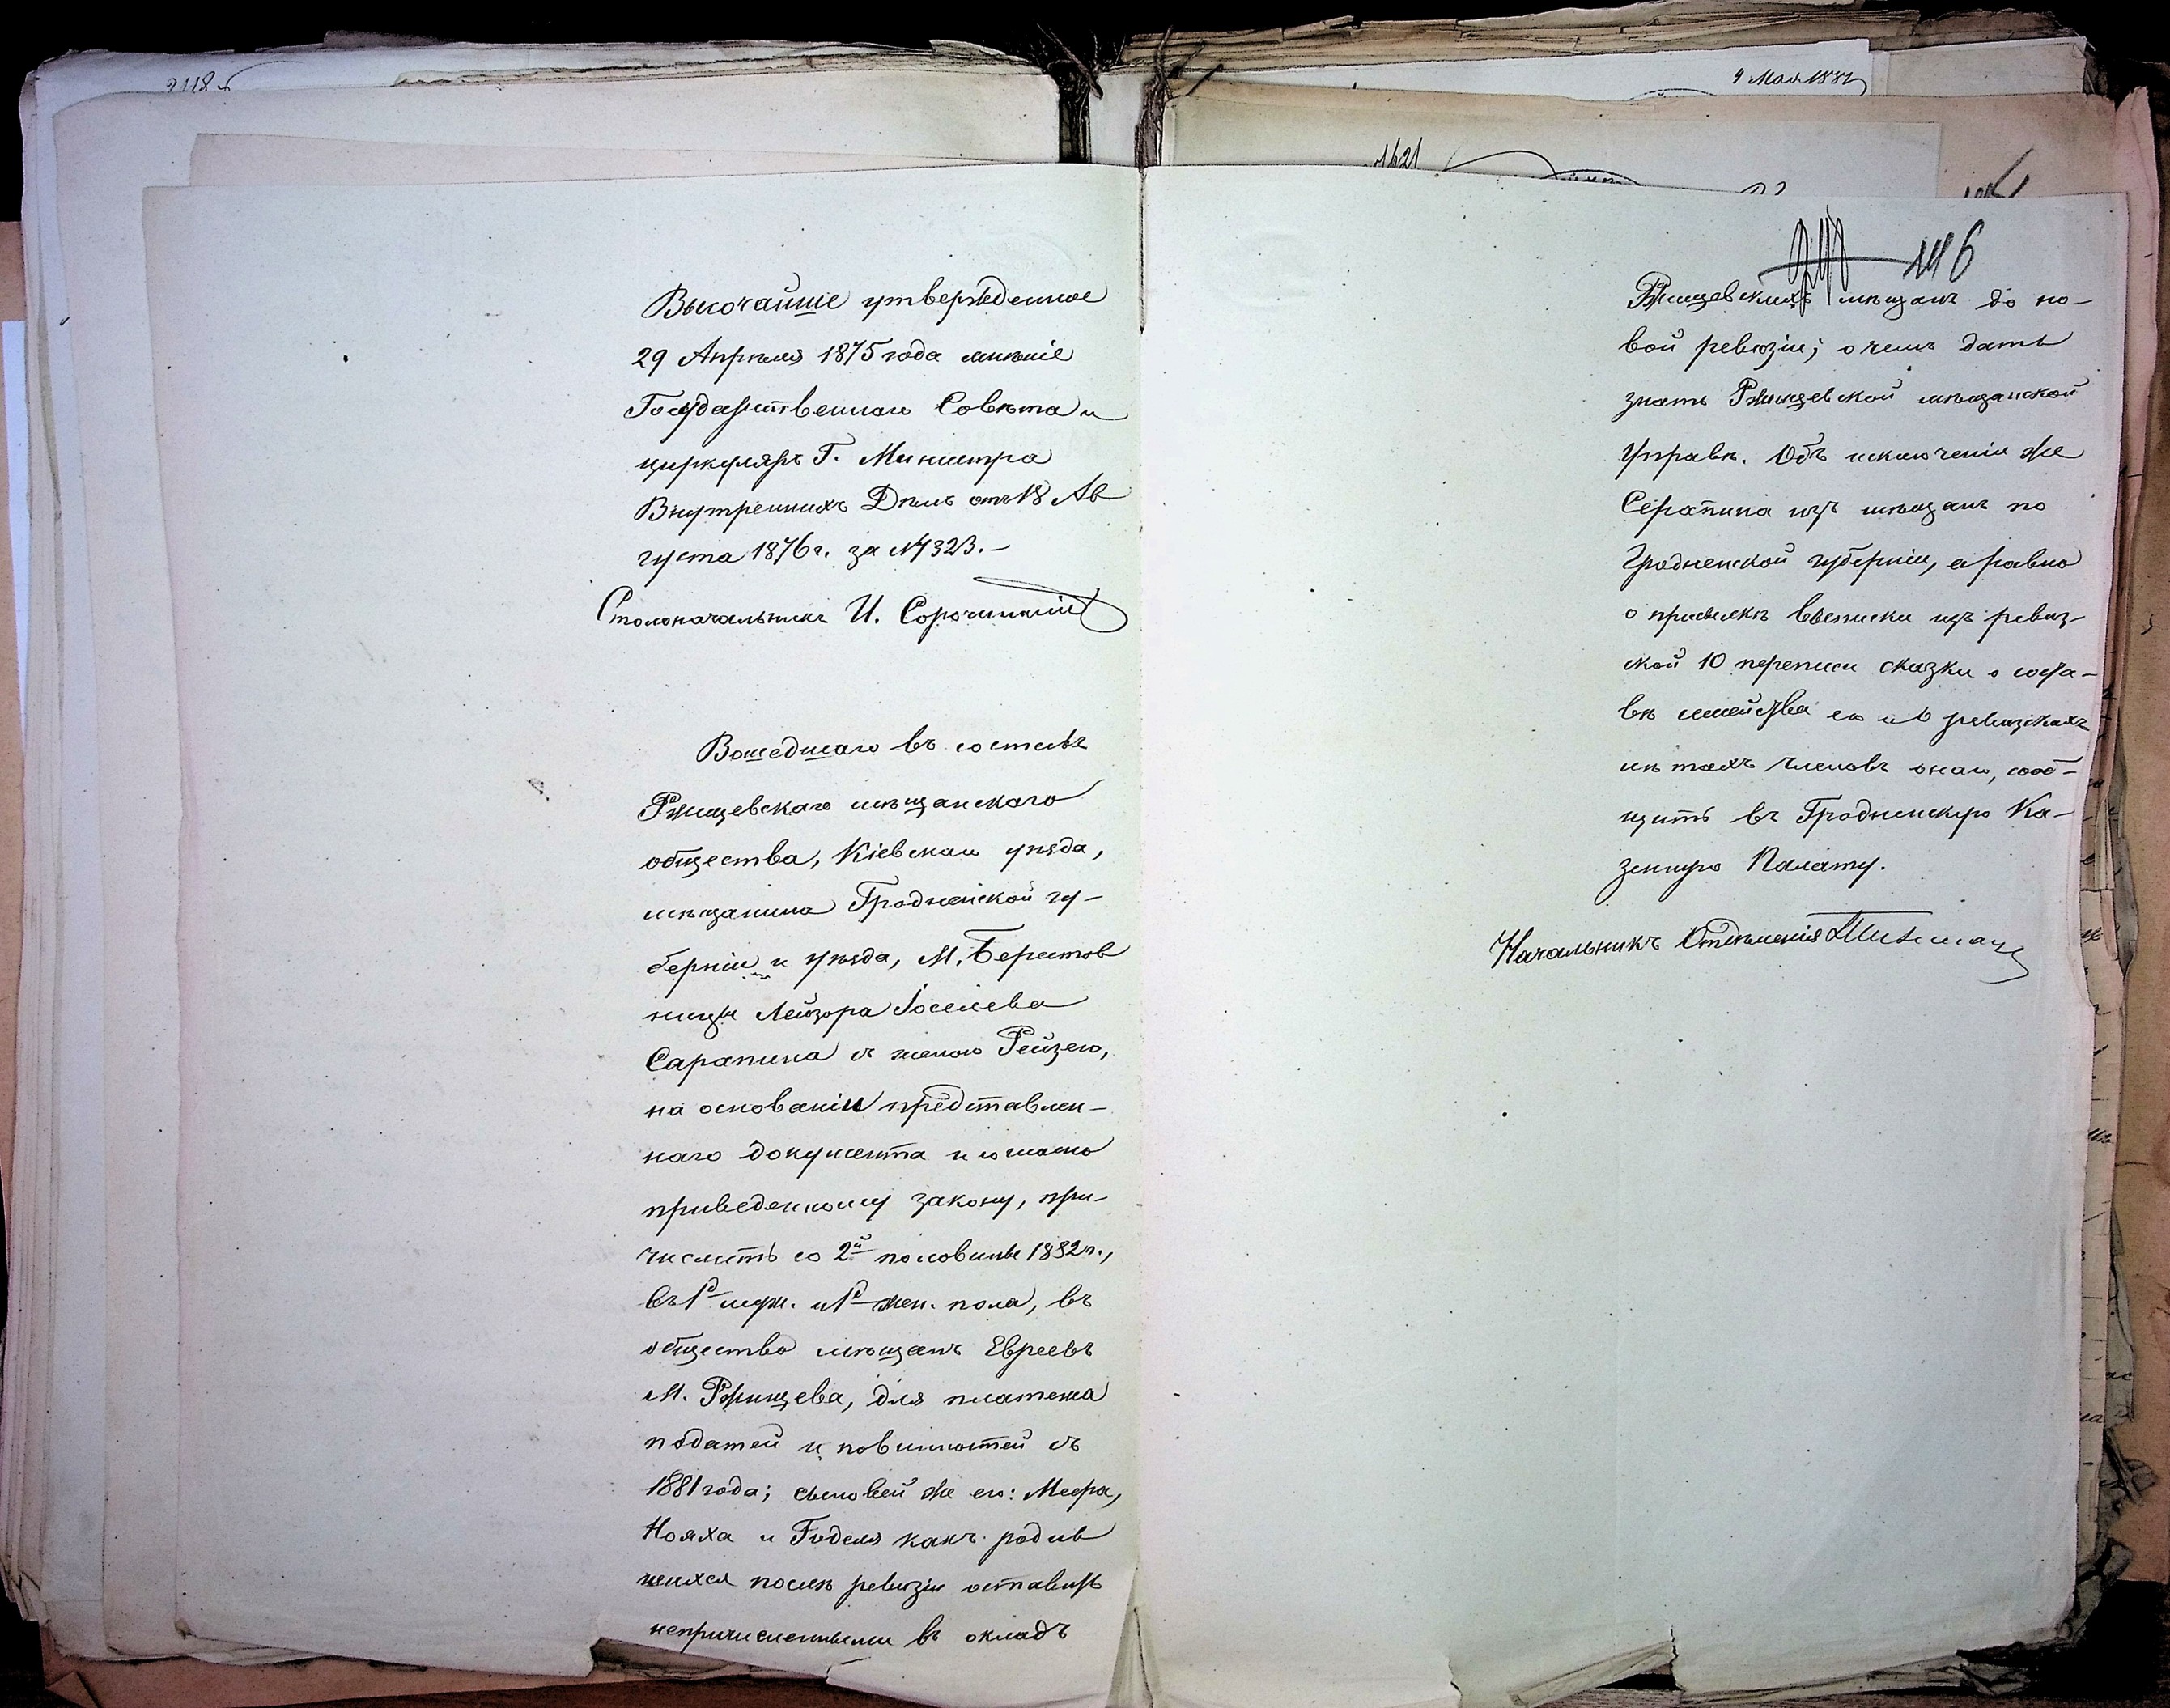 2118
4 Мая 1882
1621
146
Высочайше утвержденное
29 Апрѣля 1875 года мнѣніе
Государственнаго Совѣта и
циркуляръ Г. Министра
Внутреннихъ Дѣлъ отъ 18 Ав
густа 1876 г. за № 7323.—
Столоначальникъ И.
Вошедшаго въ составъ
Ржищевскаго мѣщанскаго
общества, Кіевскаго уѣзда,
мѣщанина Гродненской гу-
берніи и уѣзда, М. Берестов
ницы Лейзора Іоселева
Сарапина съ женою Рейзею,
на основаніи представлен-
наго документа и согласно
приведенному закону, при-
числить со 2й половины 1882 г.,
въ 1е муж. и 1е жен. пола, въ
общество мѣщанъ Евреевъ
М. Ржищева, для платежа
податей и повинностей съ
1881 года; сыновей же его: Меера,
Нояха и Годеля какъ родив
шихся послѣ ревизіи оставить
непричисленными въ окладъ
Ржищевскихъ мѣщанъ до но-
вой ревизіи; о чемъ дать
знать Ржищевской мѣщанской
Управѣ. Объ исключеніи же
Серапина изъ мѣщанъ по
Гродненской губерніи, а равно
о присылкѣ выписки изъ ревиз-
ской 10 переписи сказки о соста-
вѣ семейства его и о ревизскихъ
лѣтахъ членовъ онаго, сооб-
щить въ Гродненскую Ка-
зенную Палату.
Начальникъ Отдѣленія